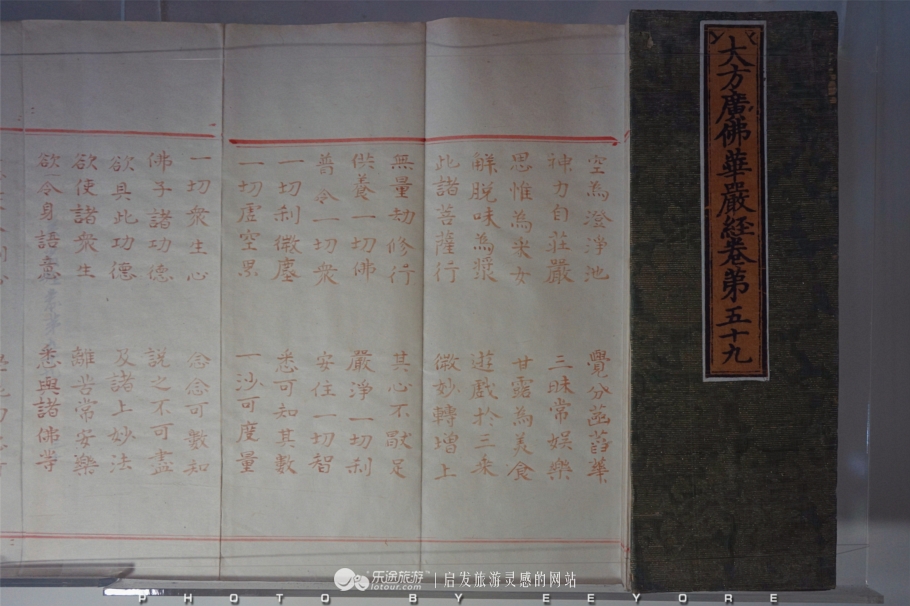 大方廣佛華嚴経卷第五十九
空為澄淨池 覺分菡萏華
神力自莊嚴 三昧常娛樂
思惟為采女 甘露為美食
解脫味為漿 遊戲於三乘
此諸菩薩行 微妙轉增上
無量劫修行 其心不猒足
供養一切佛 嚴淨一切刹
普令一切衆 安住一切智
一切刹微塵 悉可知其數
一切虛空界 一沙可度量
一切衆生心 念念可數知
佛子諸功德 說之不可盡
欲具此功德 及諸上妙法
欲使諸衆生 離苦常安樂
欲令身語意 悉與諸佛等
乐途旅游 lotour.com 启发旅游灵感的网站
PHOTO BY EEYORE